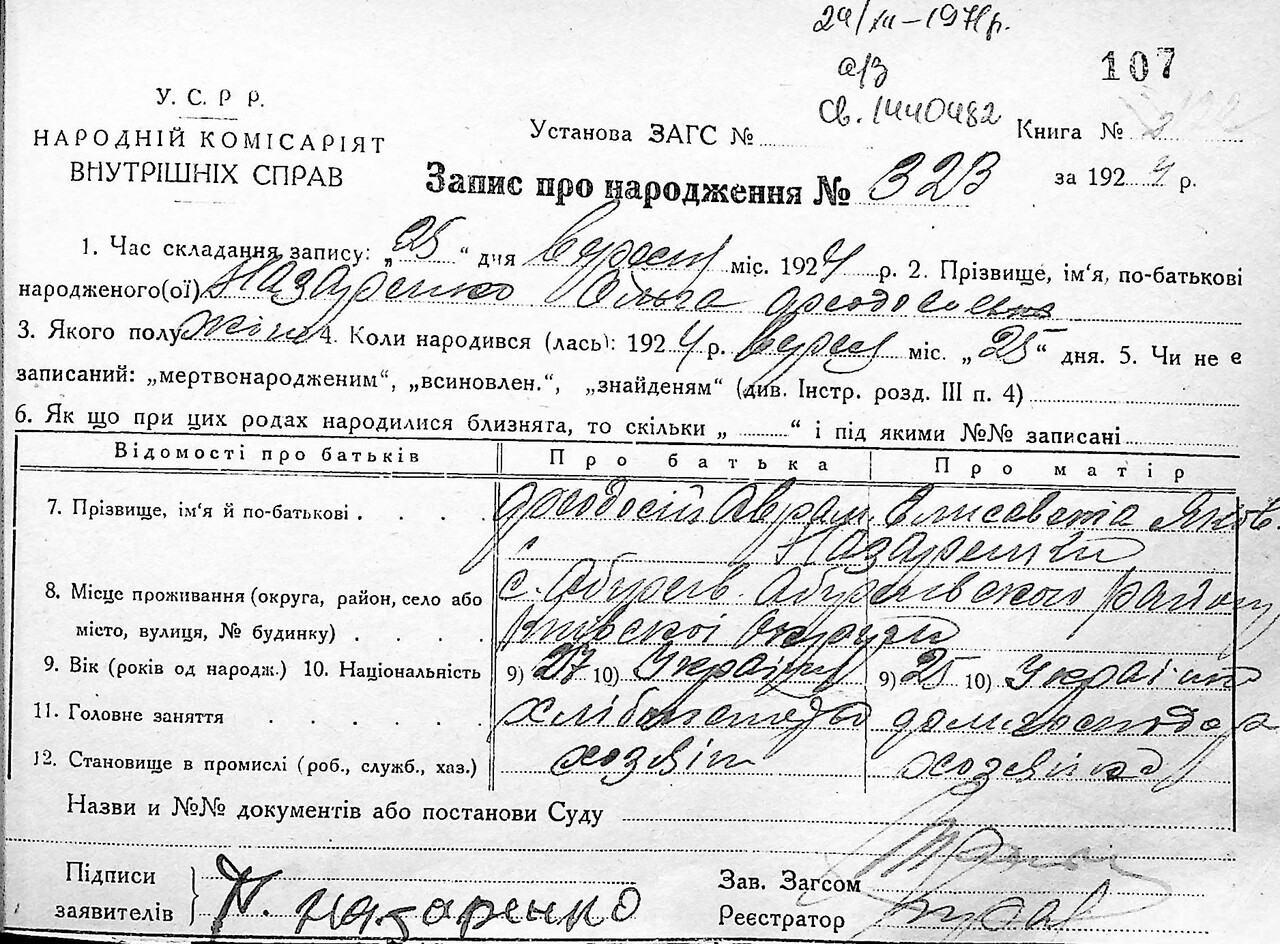 29/XII–1971р.
а/з
Св. 1440482
107
У. С. Р Р.
НАРОДНІЙ КОМІСАРІЯТ
ВНУТРІШНІХ СПРАВ
Установа ЗАГС №
Книга № 2
Запис про народження № 323
за 1924 р.
1. Час складання запису: „25“ дня вересн міс. 1924 р. 2. Прізвище, ім‘я, по-батькові
народженого(ої) Назаренко Ольга Феодосієвна
3. Якого полу жіно 4. Коли народився (лась): 1924 р. вересн міс. „25“ дня. 5. Чи не є
записаний: „мертвонародженим“, „всиновлен.“, „знайденям“ (див. Інстр. розд. III п. 4)
6. Як що при цих родах народилися близняга, то скільки „ “ і під якими №№ записані
Відомості про батьків Про батька Про матір
7. Прізвище, ім‘я й по-батькові . . . . Феодосій Аврам. Єлисавета Яков.
Назаренки
8. Місце проживання (округа, район, село або с. Обухів. Обухівского району
місто, вулиця, № будинку) . . . . Київскої округи
9. Вік (років од народж.) 10. Національність 9) 27 10) Україн 9) 25 10) Україн
11. Головне заняття . . . . . . хлібо домогосподар
12. Становище в промислі (роб., служб., хаз.) хозяін хозяйка
Назви и №№ документів або постанови Суду
Підписи
заявителів
Назаренко
Зав. Загсом
Реєстратор